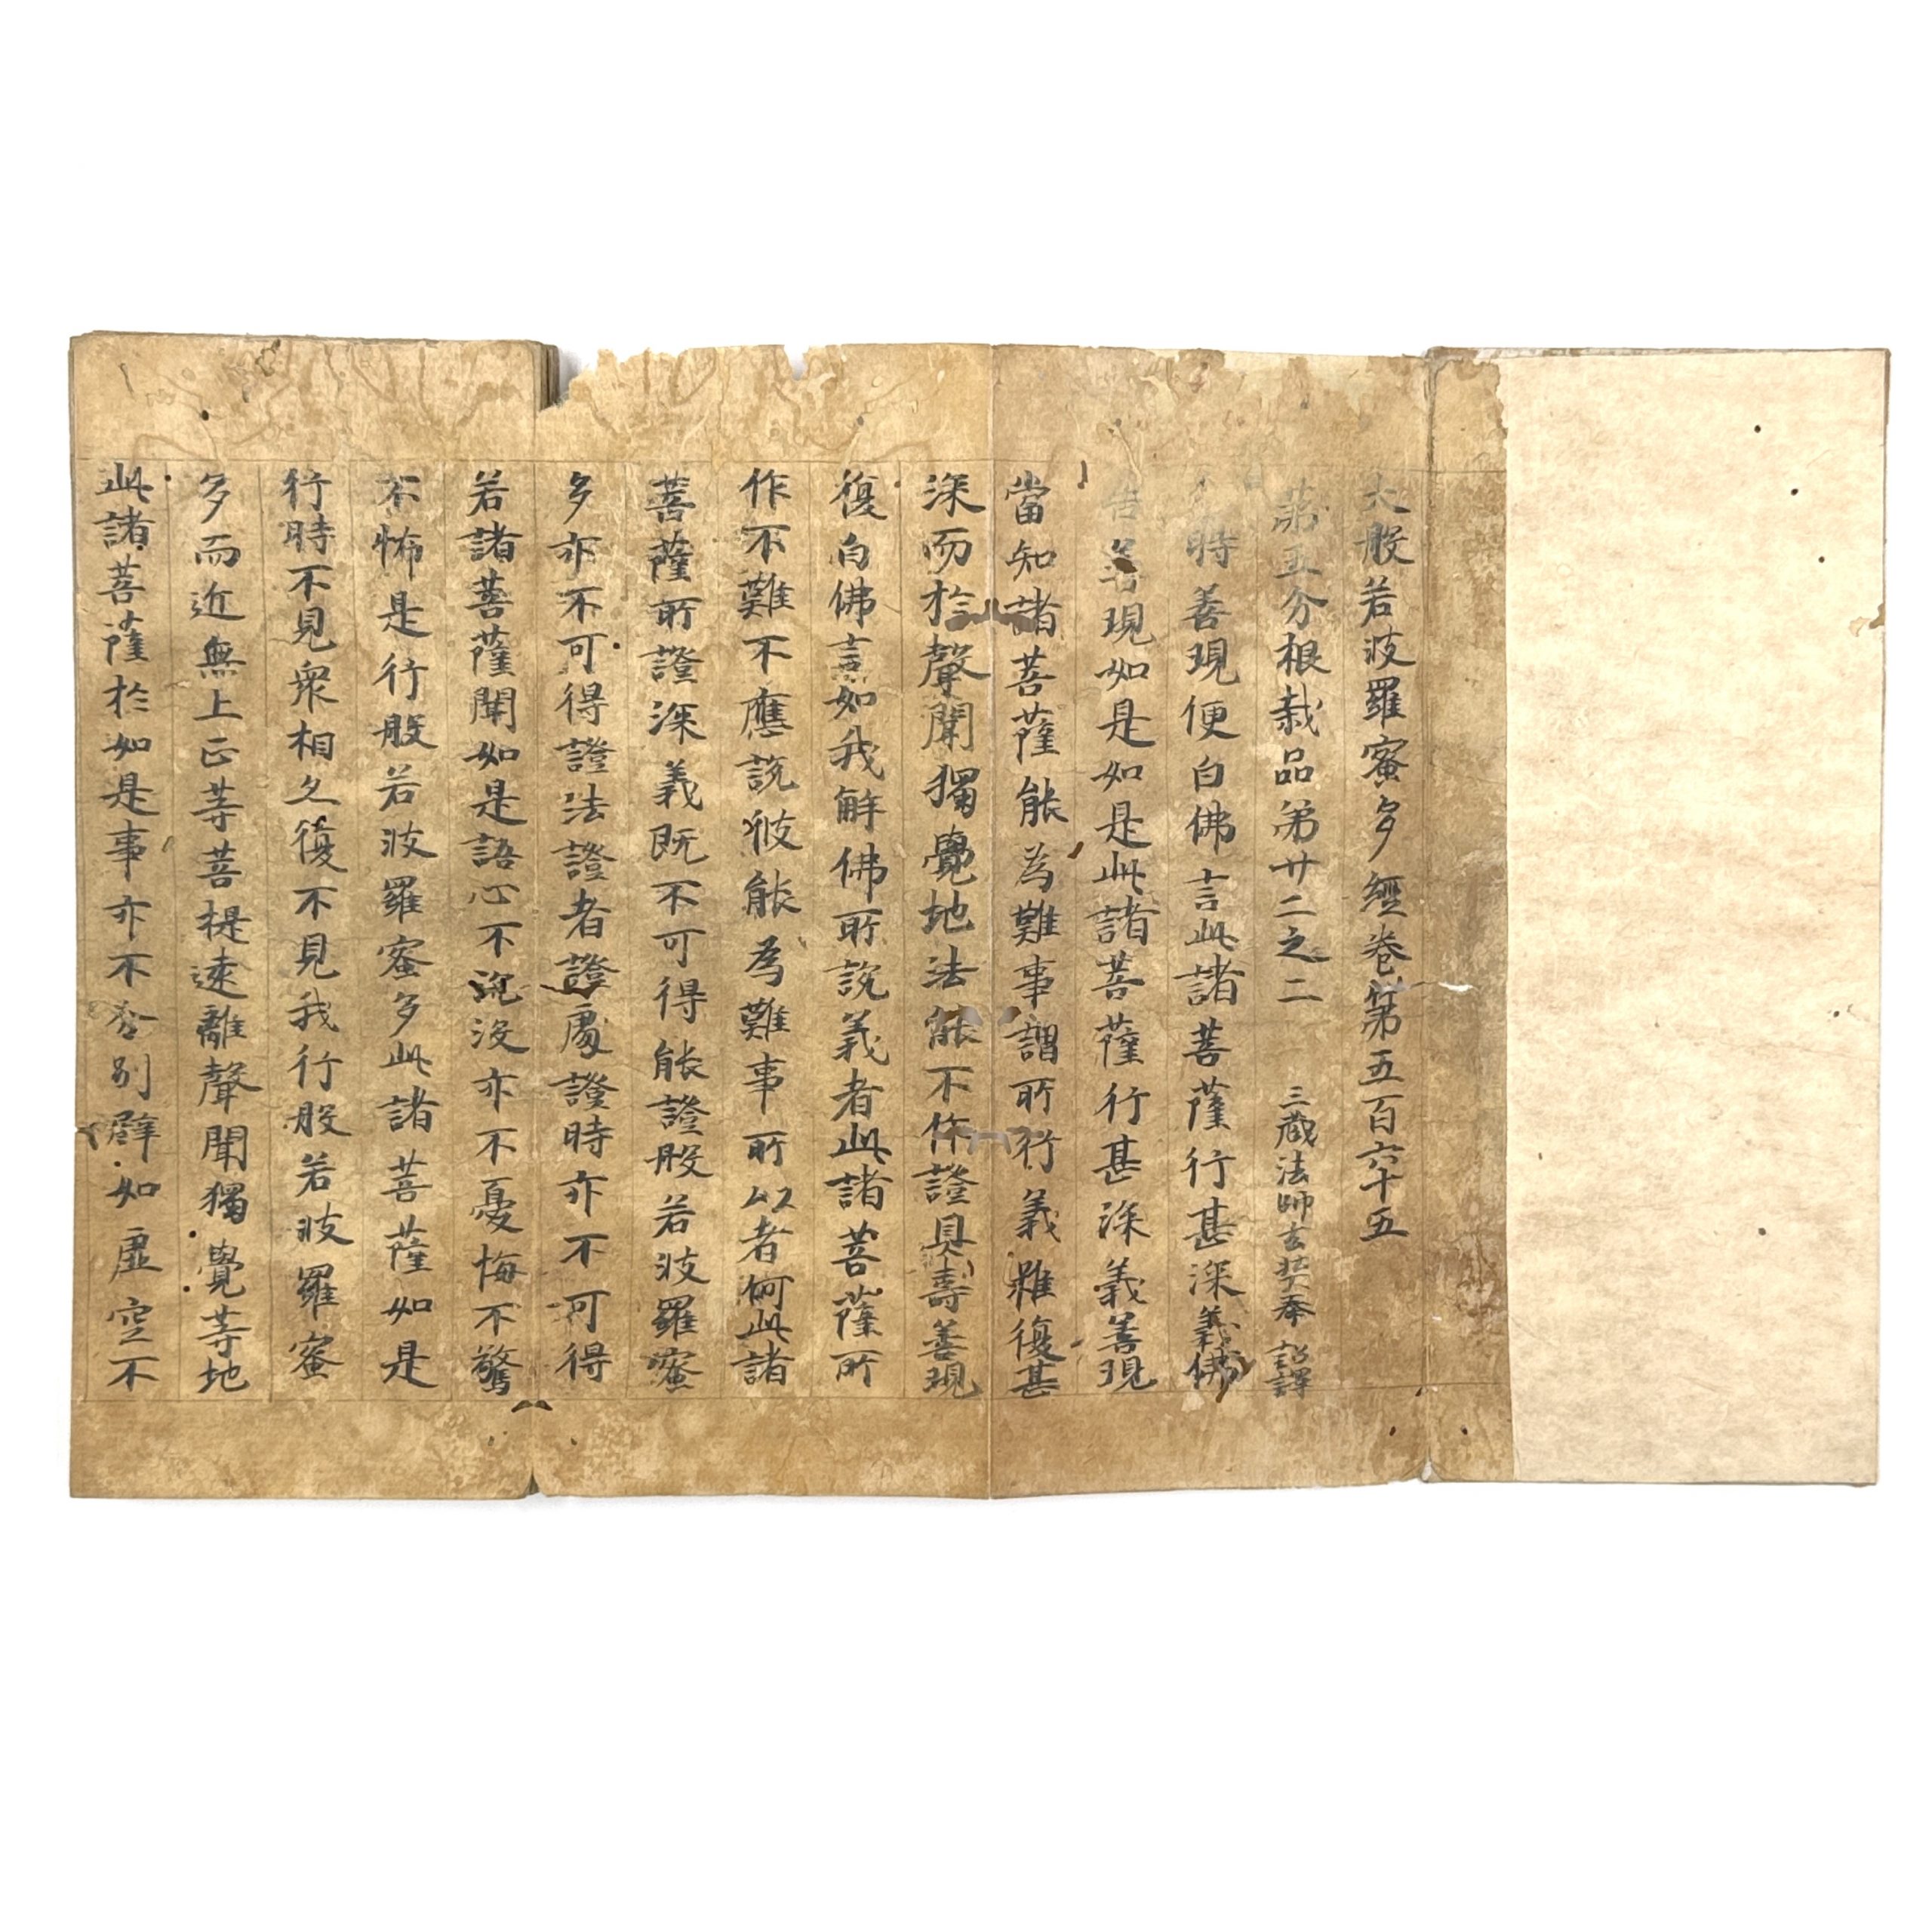 大般若波羅蜜多經卷第五百六十五
第五分根栽品第廿二之二　三藏法師玄奘奉 詔譯
時善現便白佛言此諸菩薩行甚深義佛
告善現如是如是此諸菩薩行甚深義善現
當知諸菩薩能為難事謂所行義雖復甚
深而於聲聞獨覺地法能不作證具壽善現
復白佛言如我解佛所說義者此諸菩薩所
作不難不應說彼能為難事所以者何此諸
菩薩所證深義既不可得能證般若波羅蜜
多亦不可得證法證者證處證時亦不可得
若諸菩薩聞如是語心不沉沒亦不憂悔不驚
不怖是行般若波羅蜜多此諸菩薩如是
行時不見衆相久復不見我行般若波羅蜜
多而近無上正等菩提遠離聲聞獨覺等地
此諸菩薩於如是事亦不分別譬如虛空不